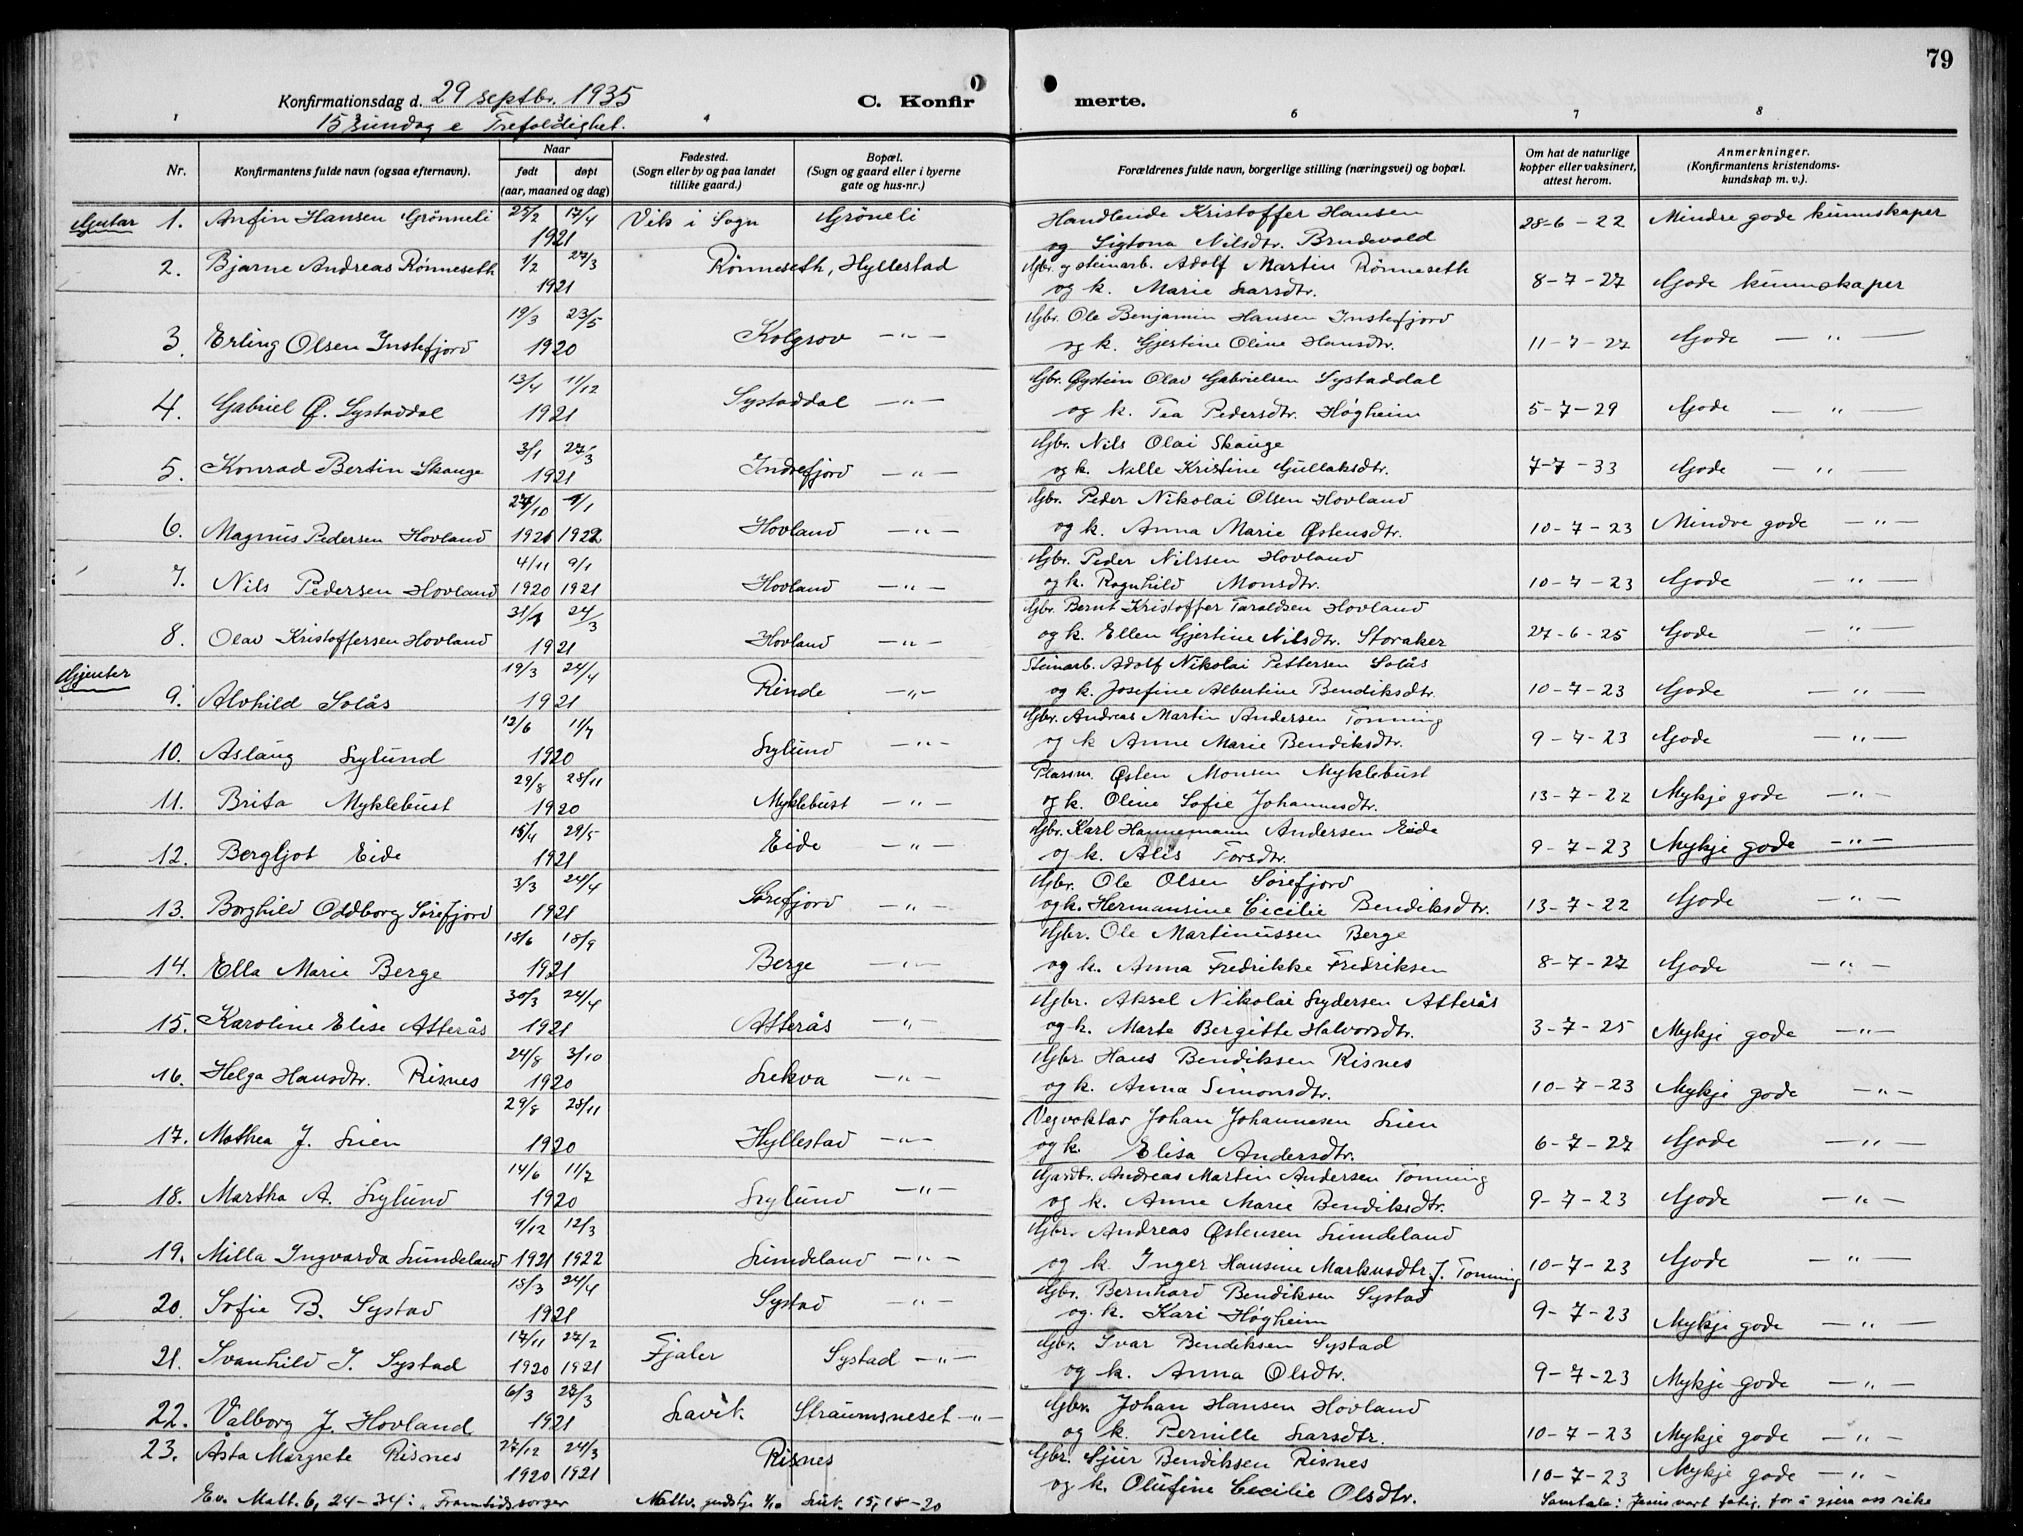 79
Konfirmationsdag d. 29 septbr. 1935
C. Konfir
merte.
15 sundag e Trefoldighet.
1 3 4 6 7 8
Nr.
Konfirmantens fulde navn (ogsaa efternavn).
Naar
født døpt
(aar, maaned og dag)
Fødested.
(Sogn eller by og paa landet
tillike gaard.)
Bopæl.
(Sogn og gaard eller i byerne
gate og hus-nr.)
Forældrenes fulde navn, borgerlige stilling (næringsvei) og bopæl.
Om hat de naturlige
kopper eller vaksinert,
attest herom.
Anmerkninger.
(Konfirmantens kristendoms-
kundskap m. v.).
Gutar 1. Anfin Hansen Grønneli 25/2 17/4 Vik i Sogn Grøneli Handlende Kristoffer Hansen 28-6-22 Mindre gode kunnskaper
1921 og Sigtona Nilsdtr. Brudevold
2. Bjarne Andreas Rønneseth 1/2 27/3 Rønneseth, Hyllestad Gbr. og steinarb. Adolf Martin Rønneseth 8-7-27 Gode kunnskaper
1921 og k. Marie Larsdtr.
19/3 23/5 Gbr. Ole Benjamin Hansen Instefjord
3. Erling Olsen Instefjord 1920 Kolgrov -"- og k. Gjertine Oline Hansdtr. 11-7-27 Gode -"-
13/4 11/12 Gbr. Øystein Olav Gabrielsen Systaddal
4. Gabriel Ø. Systaddal 1921 Systaddal -"- og k. Tea Pedersdtr. Høgheim 5-7-29 Gode -"-
3/1 27/3 Gbr. Nils Olai Skauge
5. Konrad Bertin Skauge 1921 Indrefjord -"- og k. Nille Kristine Gullaksdtr. 7-7-33 Gode -"-
27/10 1/1 Gbr. Peder Nikolai Olsen Hovland
6. Magnus Pedersen Hovland 1921 1922 Hovland -"- og k. Anna Marie Østensdtr. 10-7-23 Mindre gode -"-
4/11 9/1 Gbr. Peder Nilssen Hovland
7. Nils Pedersen Hovland 1920 1921 Hovland -"- og k. Ragnhild Monsdtr. 10-7-23 Gode -"-
31/1 24/3 Gbr. Bernt Kristoffer Taraldsen Hovland
8. Olav Kristoffersen Hovland 1921 Hovland -"- og k. Ellen Gjertine Nilsdtr. Storaker 27-6-25 Gode -"-
Gjenter 19/3 24/4 Steinarb. Adolf Nikolai Pettersen Solås
9. Alvhild Solås 1921 Rinde -"- og k. Josefine Albertine Bendiksdtr. 10-7-23 Gode -"-
12/6 11/7 Gbr. Andreas Martin Andersen Tonning
10. Aslaug Sylund 1920 Sylund -"- og k Anne Marie Bendiksdtr. 9-7-23 Gode -"-
29/8 28/11 Plassm. Østen Monsen Myklebust
11. Brita Myklebust 1920 Myklebust -"- og k. Oline Sofie Johannesdtr. 13-7-22 Mykje gode -"-
15/4 29/5 Gbr. Karl Hannemann Andersen Eide
12. Bergljot Eide 1921 Eide -"- og k. Alis Torsdtr. 9-7-23 Mykje gode -"-
3/3 24/4 Gbr. Ole Olsen Sørefjord
13. Borghild Oddborg Sørefjord 1921 Sørefjord -"- og k. Hermansine Cicilie Bendiksdtr. 13-7-22 Gode -"-
18/6 18/9 Gbr. Ole Martinussen Berge
14. Ella Marie Berge 1921 Berge -"- og k. Anna Fredrikke Fredriksen 8-7-27 Gode -"-
30/3 24/4 Gbr. Aksel Nikolai Sydersen Atterås
15. Karoline Elise Atterås 1921 Atterås -"- og k. Marte Bergitte Halvorsdtr. 3-7-25 Mykje gode -"-
24/8 3/10 Gbr Hans Bendiksen Risnes
16. Helga Hansdtr. Risnes 1920 Lekva -"- og k. Anna Simonsdtr. 10-7-23 Mykje gode -"-
29/8 28/11 Vegvoktar Johan Johannesen Lien
17. Mathea J. Lien 1920 Hyllestad -"- og k. Elisa Andersdtr. 6-7-27 Gode -"-
14/6 11/7 Gardbr. Andreas Martin Andersen Tonning
18. Martha A. Sylund 1920 Sylund -"- og k. Anne Marie Bendiksdtr. 9-7-23 Gode -"-
9/12 12/3 Gbr. Andreas Østensen Lundeland
19. Milla Ingvarda Lundeland 1921 1922 Lundeland -"- og k Inger Hansine Markusdtr J. Tonning 10-7-23 Gode -"-
18/3 24/4 Gbr. Bernhard Bendiksen Systad
20. Sofie B. Systad 1921 Systad -"- og k. Kari Høgheim 9-7-23 Mykje gode -"-
17/11 27/2 Gbr. Ivar Bendiksen Systad
21. Svanhild I. Systad 1920 1921 Fjaler Systad -"- og k. Anna Olsdtr. 9-7-23 Mykje gode -"-
6/3 28/3 Gbr. Johan Hansen Hovland
22. Valborg J. Hovland 1921 Lavik Straumsneset -"- og k. Pernille Larsdtr. 10-7-23 Mykje gode -"-
23. Åsta Margrete Risnes 27/12 24/3 Risnes Gbr. Sjur Bendiksen Risnes
1920 1921 og k. Olufine Cecilie Olsdtr. 10-7-23 Mykje gode -"-
Ev. Matt. 6, 24-34: "Framtidssorger Nattv. gudstj. 4/10 Luk. 15, 18-20 Samtale: Jesus vart fatig, for å gjera oss rike